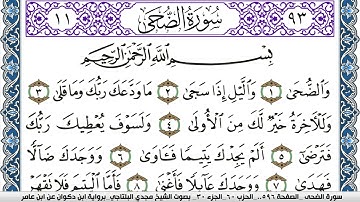 ١١ سُورَةُ الضُّحَىٰ ٩٣
بِسْمِ اللَّهِ الرَّحْمَٰنِ الرَّحِيمِ
وَالضُّحَىٰ ١ وَاللَّيْلِ إِذَا سَجَىٰ ٢ مَا وَدَّعَكَ رَبُّكَ وَمَا قَلَىٰ ٣
وَلَلْآخِرَةُ خَيْرٌ لَّكَ مِنَ الْأُولَىٰ ٤ وَلَسَوْفَ يُعْطِيكَ رَبُّكَ
فَتَرْضَىٰ ٥ أَلَمْ يَجِدْكَ يَتِيمًا فَـَٔاوَىٰ ٦ وَوَجَدَكَ ضَالًّا
فَهَدَىٰ ٧ وَوَجَدَكَ عَائِلًا فَأَغْنَىٰ ٨ فَأَمَّا الْيَتِيمَ فَلَا تَقْهَرْ
سورة الضحى_الصفحة ٥٩٦.. الحزب ٦٠_الجزء ٣٠.. بصوت الشيخ مجدي البلتاجي.. برواية ابن ذكوان عن ابن عامر